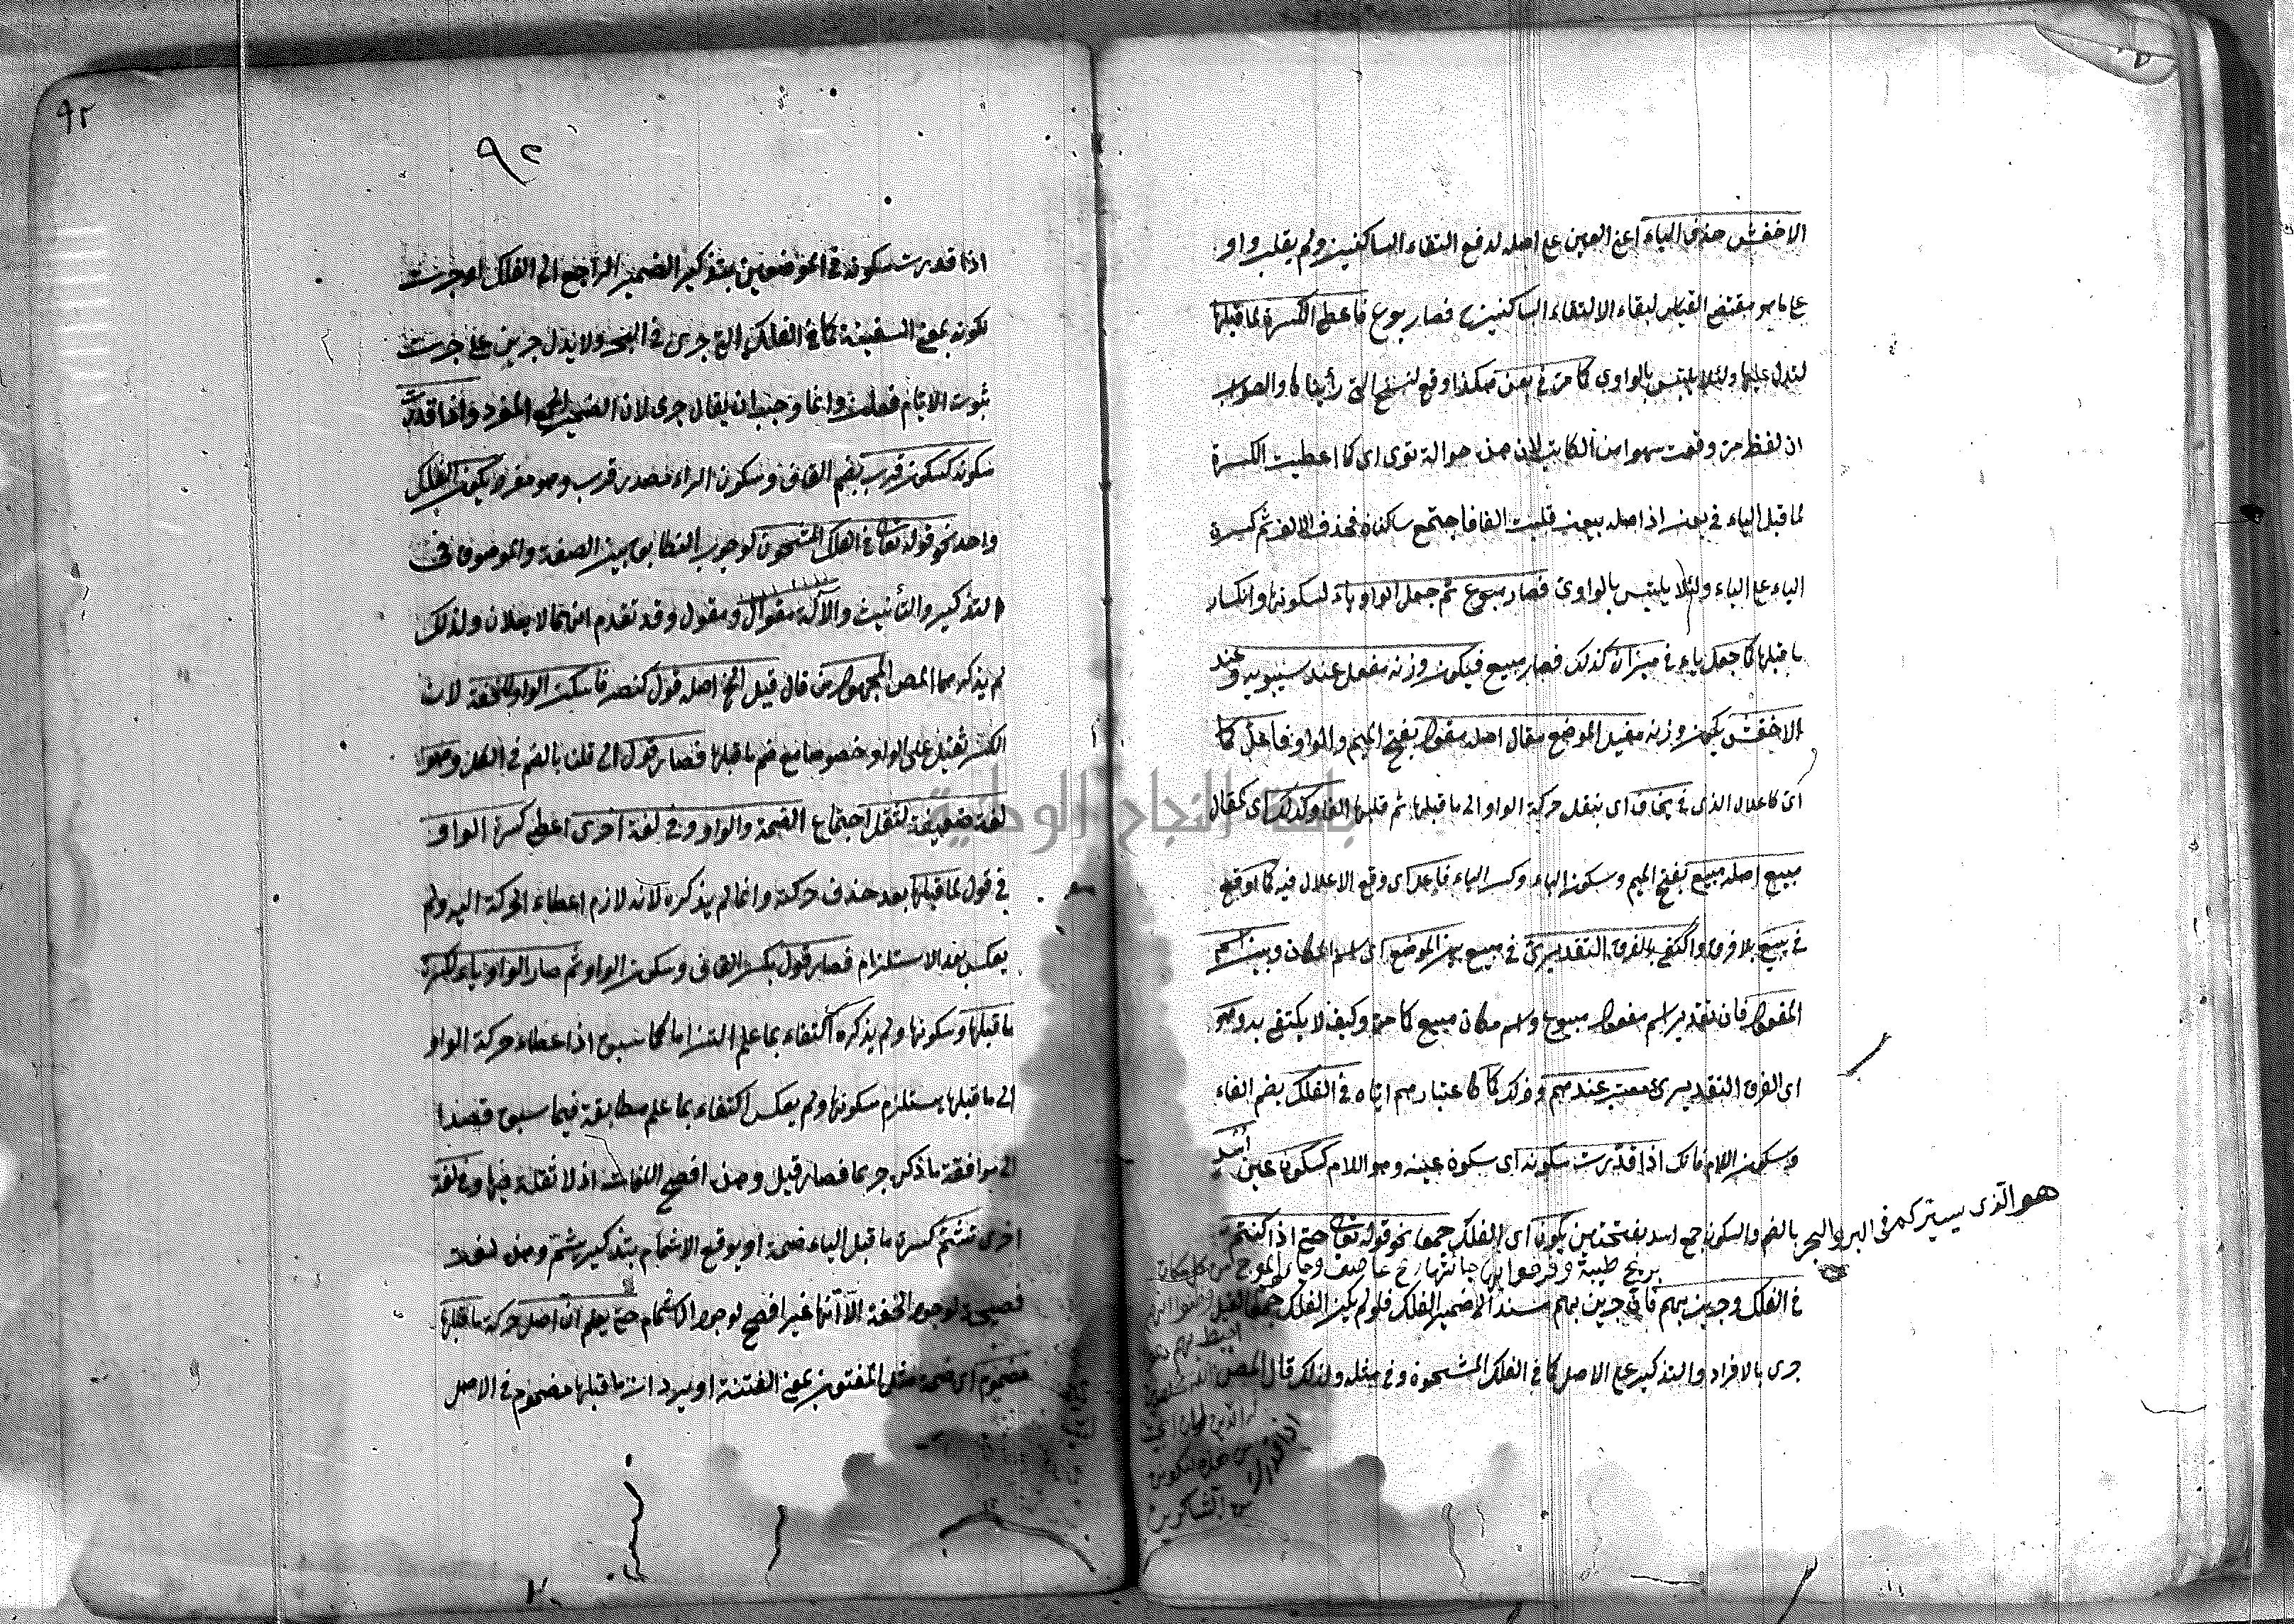 الاخفش حذف الياء اعنى العين على اصله لدفع التقاء الساكنين ولم يقلب واو
على ما هو مقتضى القياس لبقاء الالتقاء الساكنين فصار بوع فاعطى الكسرة لما قبلها
لتدل عليها ولئلا يلتبس بالواوي كما مر في بعن هكذا وقع لنسخ التي رأيناها والصواب
ان لفظ مر وقعت سهوا من الكاتب لان هذه حوالة توى اي كما اعطيت الكسرة
لما قبل الياء في بعن اذ اصله بيعن قلبت الفا فاجتمع ساكنان فحذف الالف ثم كسرة
الباء على الياء ولئلا يلتبس بالواوي فصار مبوع ثم جعل الواو ياء لسكونها وانكسار
ما قبلها كما جعل ياء في ميزان كذلك فصار مبيع فيكون وزنه مفعل عند سيبويه وعند
الاخفش يكون وزنه مفيل الموضع مقال اصله مقول بفتح الميم والواو فاعل كما
اي كاعلال الذي في يخاف اي بنقل حركة الواو الى ما قبلها ثم قلبها الفا وكذلك اي كمقال
مبيع اصله مبيع بفتح الميم وسكون الباء وكسر الياء فاعل اي وقع الاعلال فيه كما اوقع
في يبيع بلا فرق واكتفى بالفرق التقديري في مبيع بين الموضع اي اسم المكان وبين اسم
المفعول فان تقدير اسم مفعول مبيوع واسم مكان مبيع كما مر وكيف لا يكتفى به وهو
اي الفرق التقديري معتبر عندهم وذلك كاعتبارهم اياه في الفلك بضم الفاء
وسكون اللام فانك اذا قدرت سكونه اي سكون عينه وهو اللام كسكون عين اسد
بالضم والسكون جمع اسد بفتحتين يكون اي الفلك جمعا نحو قوله تعالى حتى اذا كنتم
هو الذي يسيركم في البر والبحر
بريح طيبة وفرحوا بها جاءتها ريح عاصف وجاءهم الموج من كل مكان
في الفلك وجرين بهم فان جرين بهم مسند الى ضمير الفلك فلو لم يكن الفلك جمعا لقيل
وظنوا انهم
احيط بهم دعوا
جرى بالافراد والتذكير على الاصل كما في الفلك المشحون وفي مثله ولذلك قال المص
الله مخلصين
له الدين لئن انجيتنا
من هذه لنكونن
من الشاكرين
٩٢
٩٢
اذا قدرت سكونه في الموضعين بتذكير الضمير الراجع الى الفلك او جرت
لكونه بمعنى السفينة كما في الفلك التي تجري في البحر ولا يدل جرين على جرت
ثبوت الايام فعلن وانما وجب ان يقال جرى لان الضمير الى المفرد واذا قدرت
سكونه كسكون قرب بضم القاف وسكون الراء مصدر قرب وهو مفرد يكون الفلك
واحد نحو قوله تعالى في الفلك المشحون لوجوب التطابق بين الصفة والموصوف في
التذكير والتأنيث والآلة مقوال ومقول وقد تقدم انهما لا يعلان ولذلك
لم يذكرهما المص المجهول من قال قيل الخ اصله قول كنصر فاسكنت الواو للخفة لان
الكسر ثقيل على الواو خصوصا مع ضم ما قبلها فصار قول الى قلن بالضم في الكل وهو
لغة ضعيفة لثقل اجتماع الضمة والواو وفي لغة اخرى اعطى كسرة الواو
في قول لما قبلها بعد حذف حركته وانما لم يذكره لانه لازم اعطاء الحركة اليه ولم
يعكس بعد الاستلزام فصار قول بكسر القاف وسكون الواو ثم صار الواو ياء لكسرة
ما قبلها وسكونها ولم يذكره اكتفاء بما علم التزاما كما سبق اذ اعطاء حركة الواو
الى ما قبلها يستلزم سكونها ولم يعكس اكتفاء بما علم مطابقة فيما سبق قصدا
الى موافقة ما ذكر جريا فصار قيل وهذه افصح اللغات اذ لا ثقلة فيها وفي لغة
اخرى تشم كسرة ما قبل الياء ضمة او يوقع الاشمام بتذكير يشم وهذه لغة
فصيحة لوجود الخفة الا انها غير افصح لوجود الاشمام حتى يعلم ان اصل حركة ما قبلها
مضموم اي ضمة مثل المفتون بمعنى الفتنة او يراد ان ما قبلها مضموم في الاصل
جامعة النجاح الوطنية